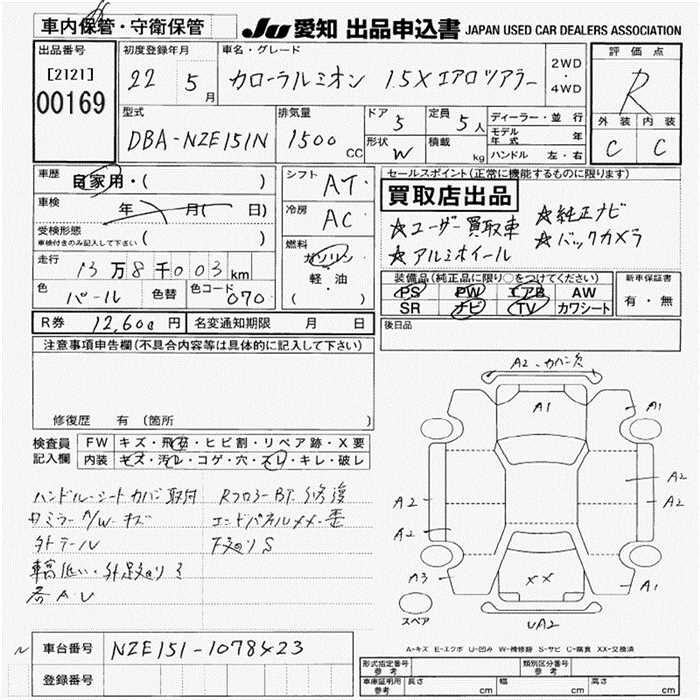 車内保管・守衛保管
JU 愛知 出品申込書 JAPAN USED CAR DEALERS ASSOCIATION
出品番号 初度登録年月 車名・グレード 評価点
[2121] 22 5月 カローラルミオン 1.5X エアロツアラー 2WD・4WD R
00169
型式 排気量 ドア 定員 ディーラー・並行 外装 内装
DBA-NZE151N 1500cc 5 5人 モデル年式 年 C C
形状 W 積載 kg ハンドル 左・右
車歴 自家用・( ) シフト AT セールスポイント(正常に機能するものに限ります)
車検 年 月( 日) 冷房 AC 買取店出品
受検形態 ( )
車検付きのみ記入して下さい
☆ユーザー買取車 ☆純正ナビ
☆アルミホイール ☆バックカメラ
燃料 ガソリン
軽・油
( )
走行 13万8千003km
色 パール 色替 色コード 070
装備品(純正品に限り○をつけてください) 新車保証書
PS PW エアB AW 有・無
SR ナビ TV カワシート
R券 12,600円 名変通知期限 月 日 後日品
注意事項申告欄(不具合内容等は具体的に記入して下さい)
修復歴 有(箇所 )
検査員記入欄 FW キズ・飛石・ヒビ割・リペア跡・X要
内装 キズ・汚レ・コゲ・穴・スレ・キレ・破レ
ハンドル・シートカバー取付 Rフロアー
サミラー A/W キズ エンドパネル
外テール 下廻りS
A2 カバー欠
A1
A1
A2
A2
A2
A2
A3
XX
A1
UA2
スペア
A-キズ E-エクボ U-凹み W-補修跡 S-サビ C-腐食 XX-交換済
車台番号 NZE151-1078423
登録番号
形式指定番号 参考 類別区分番号 参考
車庫証明用 参考 長さ cm 幅 cm 高さ cm